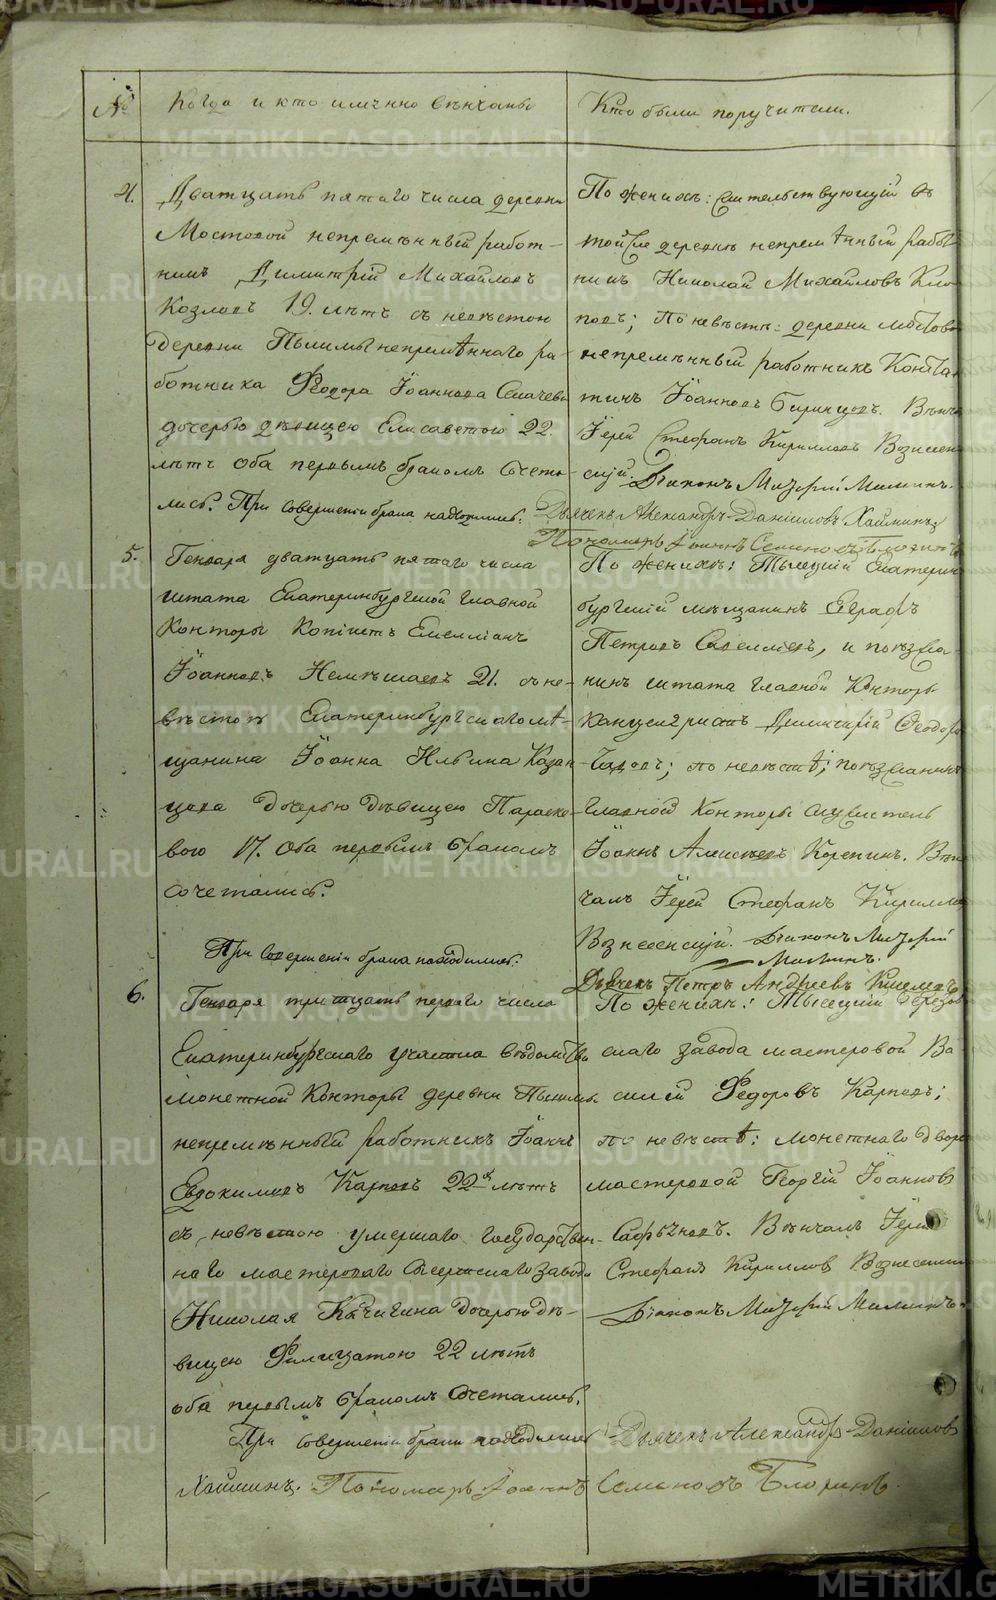 № Когда и кто имянно вѣнчаны
Кто были поручители.
4. Дватцать пятаго числа деревни
Мостовой непремѣнный работ-
никъ Димитрій Михайловъ
Козловъ 19. лѣтъ съ невѣстою
деревни Пышмы непремѣннаго ра-
ботника Ѳеодора Іоаннова
дочерью дѣвицею Елисаветою 22.
лѣтъ оба первымъ бракомъ сочета-
лись. При совершеніи брака находились:
По женихѣ: жительствующій въ
той же деревнѣ непремѣнный рабо
никъ Николай Михайловъ Кло
повъ; По невѣстѣ: деревни Мостов
непремѣнный работникъ Конста
тинъ Іоанновъ Вѣнч
Іерей Стефанъ Кирилловъ Вознесен
скій. Діаконъ
Дьячекъ Александръ Даніиловъ Хайминъ
Пономарь Іоаннъ Семеновъ
5. Генваря дватцать пятаго числа
штата Екатеринбургской главной
Конторы Копіистъ Емелліанъ
Іоанновъ 21. съ не-
вѣстою Екатеринбургскаго мѣ-
щанина Іоанна Ильина Казан
цова дочерью дѣвицею Параско-
вою 17. Оба первымъ бракомъ
сочетались.
При совершеніи брака находились:
По женихѣ: Тысецкій Екатерин
бургскій мѣщанинъ Евграфъ
Петровъ Савелліевъ, и поѣзжа-
нинъ штата главной Конторы
канцеляристъ Димитрій Ѳеодоро
по невѣстѣ; поѣзжанинъ
главной Конторы служитель
Іоаннъ Алексѣевъ Корепинъ. Вѣн
чалъ Іерей Стефанъ Кирилло
Вознесенскій. Діаконъ
Дьячекъ Петръ Андреевъ
6. Генваря тритцать перваго числа
Екатеринбургскаго участка вѣдомства
монетной Конторы деревни Пышмы
непремѣнный работникъ Іоаннъ
Евдокимовъ Карповъ 22х лѣтъ
съ невѣстою умершаго государствен-
наго мастероваго завода
Николая Качигина дочерью дѣ-
вицею Филицатою 22 лѣтъ
оба первымъ бракомъ сочетались.
При совершеніи брака находились
По женихѣ: Тысецкій Березов
скаго завода мастеровой Ва
силій Федоровъ Карповъ;
по невѣстѣ: монетнаго двора
мастеровой Георгій Іоанновъ
Вѣнчалъ Іерей
Стефанъ Кирилловъ Вознесенскій
Діаконъ
Дьячекъ Александръ Даніиловъ
Хайминъ. Пономарь Іоаннъ Семеновъ
METRIKI.GASO-URAL.RU